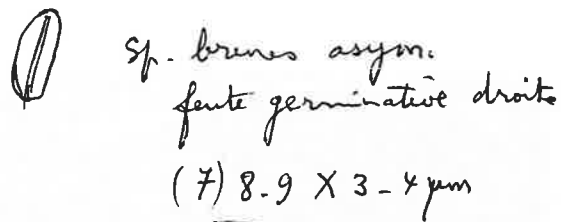 sp. brunes asym.
fente germinative droite
(7) 8-9 X 3-4 µm